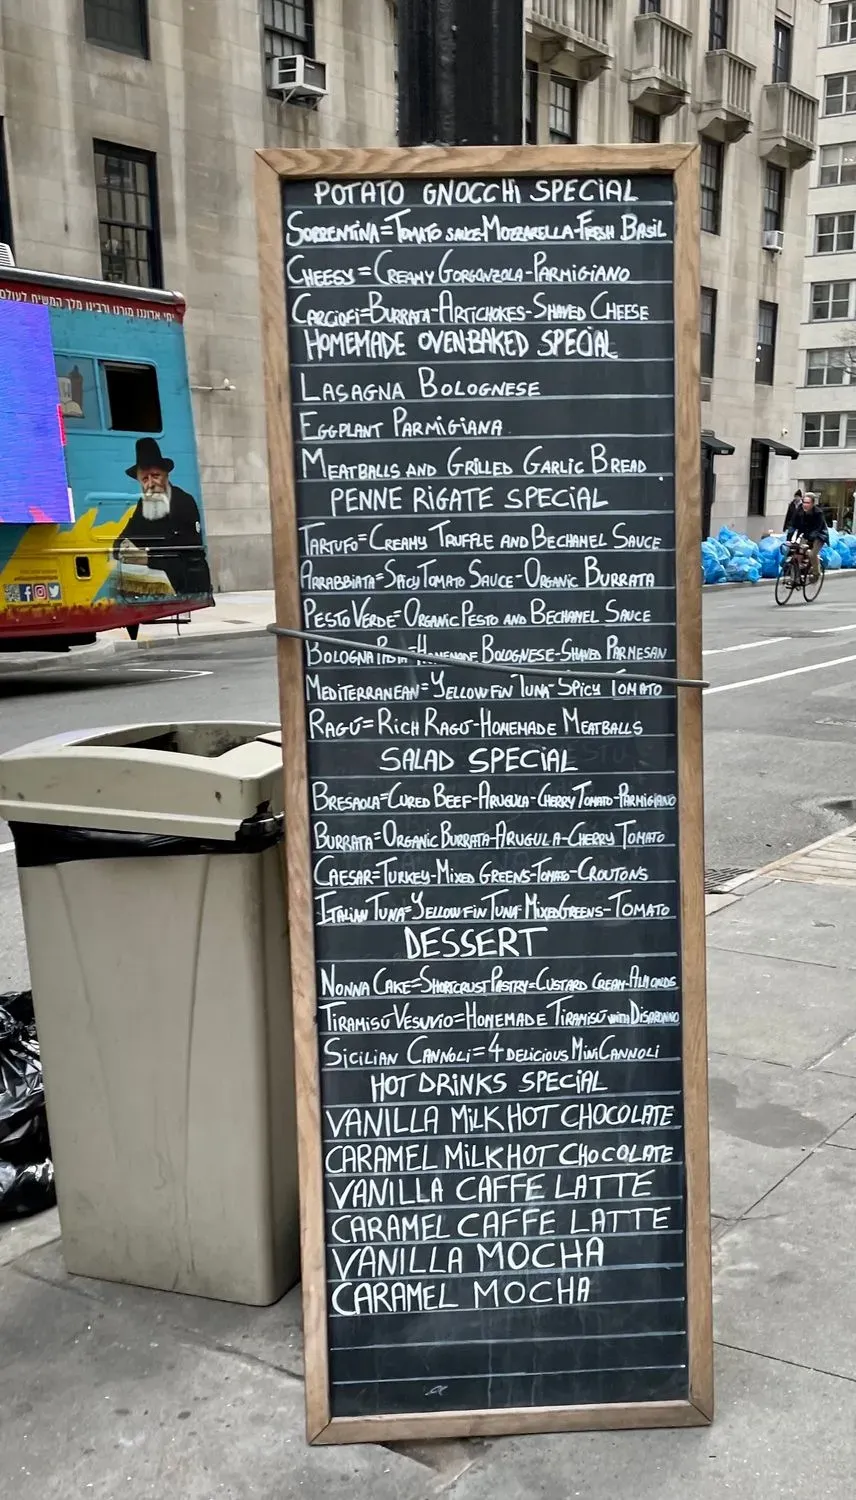 POTATO GNOCCHI SPECIAL
SORRENTINA=TOMATO SAUCE-MOZZARELLA-FRESH BASIL
CHEESY=CREAMY GORGONZOLA-PARMIGIANO
CARCIOFI=BURRATA-ARTICHOKES-SHAVED CHEESE
HOMEMADE OVENBAKED SPECIAL
LASAGNA BOLOGNESE
EGGPLANT PARMIGIANA
MEATBALLS AND GRILLED GARLIC BREAD
PENNE RIGATE SPECIAL
TARTUFO=CREAMY TRUFFLE AND BECHAMEL SAUCE
ARRABBIATA=SPICY TOMATO SAUCE-ORGANIC BURRATA
PESTO VERDE=ORGANIC PESTO AND BECHAMEL SAUCE
BOLOGNA HOMEMADE BOLOGNESE-SHAVED PARMESAN
MEDITERRANEAN=YELLOWFIN TUNA-SPICY TOMATO
RAGÚ=RICH RAGÚ-HOMEMADE MEATBALLS
SALAD SPECIAL
BRESAOLA=CURED BEEF-ARUGULA-CHERRY TOMATO-PARMIGIANO
BURRATA=ORGANIC BURRATA-ARUGULA-CHERRY TOMATO
CAESAR=TURKEY-MIXED GREENS-TOMATO-CROUTONS
ITALIAN TUNA=YELLOWFIN TUNA-MIXED GREENS-TOMATO
DESSERT
NONNA CAKE=SHORTCRUST PASTRY=CUSTARD CREAM-ALMONDS
TIRAMISÚ VESUVIO=HOMEMADE TIRAMISÚ WITH DISARONNO
SICILIAN CANNOLI=4 DELICIOUS MINI CANNOLI
HOT DRINKS SPECIAL
VANILLA MILK HOT CHOCOLATE
CARAMEL MILK HOT CHOCOLATE
VANILLA CAFFE LATTE
CARAMEL CAFFE LATTE
VANILLA MOCHA
CARAMEL MOCHA
יחי אדוננו מורנו ורבינו מלך המשיח לעולם